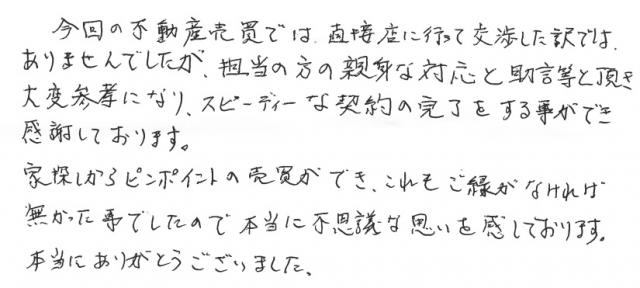 今回の不動産売買では、直接店に行って交渉した訳では、
ありませんでしたが、担当の方の親身な対応と助言等と頂き
大変参考になり、スピーディーな契約の完了をする事ができ
感謝しております。
家探しからピンポイントの売買ができ、これもご縁がなければ
無かった事でしたので本当に不思議な思いを感しております。
本当にありがとうございました、